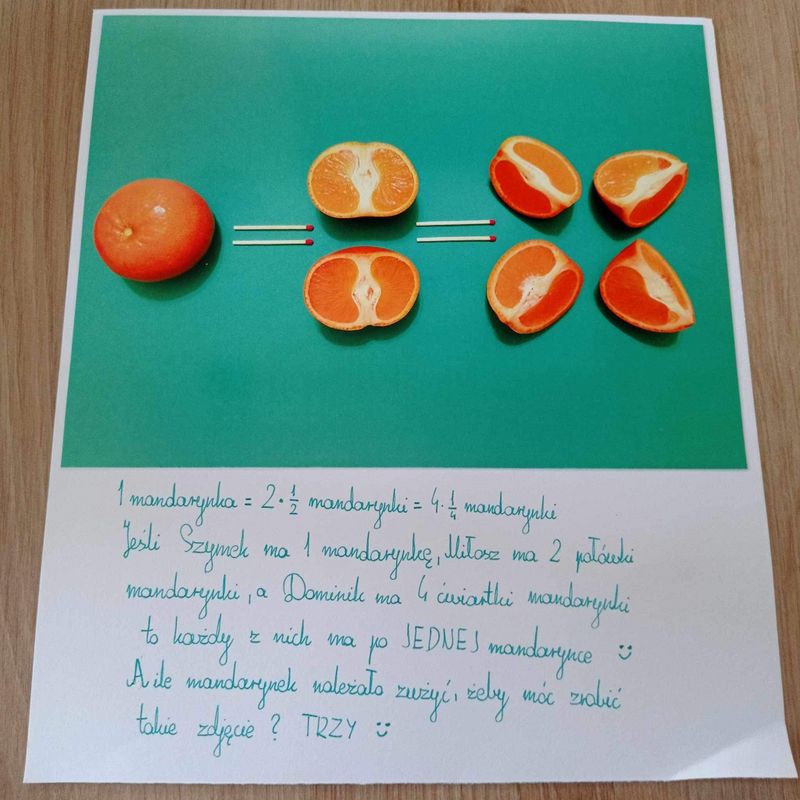 1 mandarynka = 2 · 1/2 mandarynki = 4 · 1/4 mandarynki
Jeśli Szymek ma 1 mandarynkę, Miłosz ma 2 połówki
mandarynki, a Dominik ma 4 ćwiartki mandarynki
to każdy z nich ma po JEDNEJ mandarynce :)
A ile mandarynek należało zużyć, żeby móc zrobić
takie zdjęcie? TRZY :)